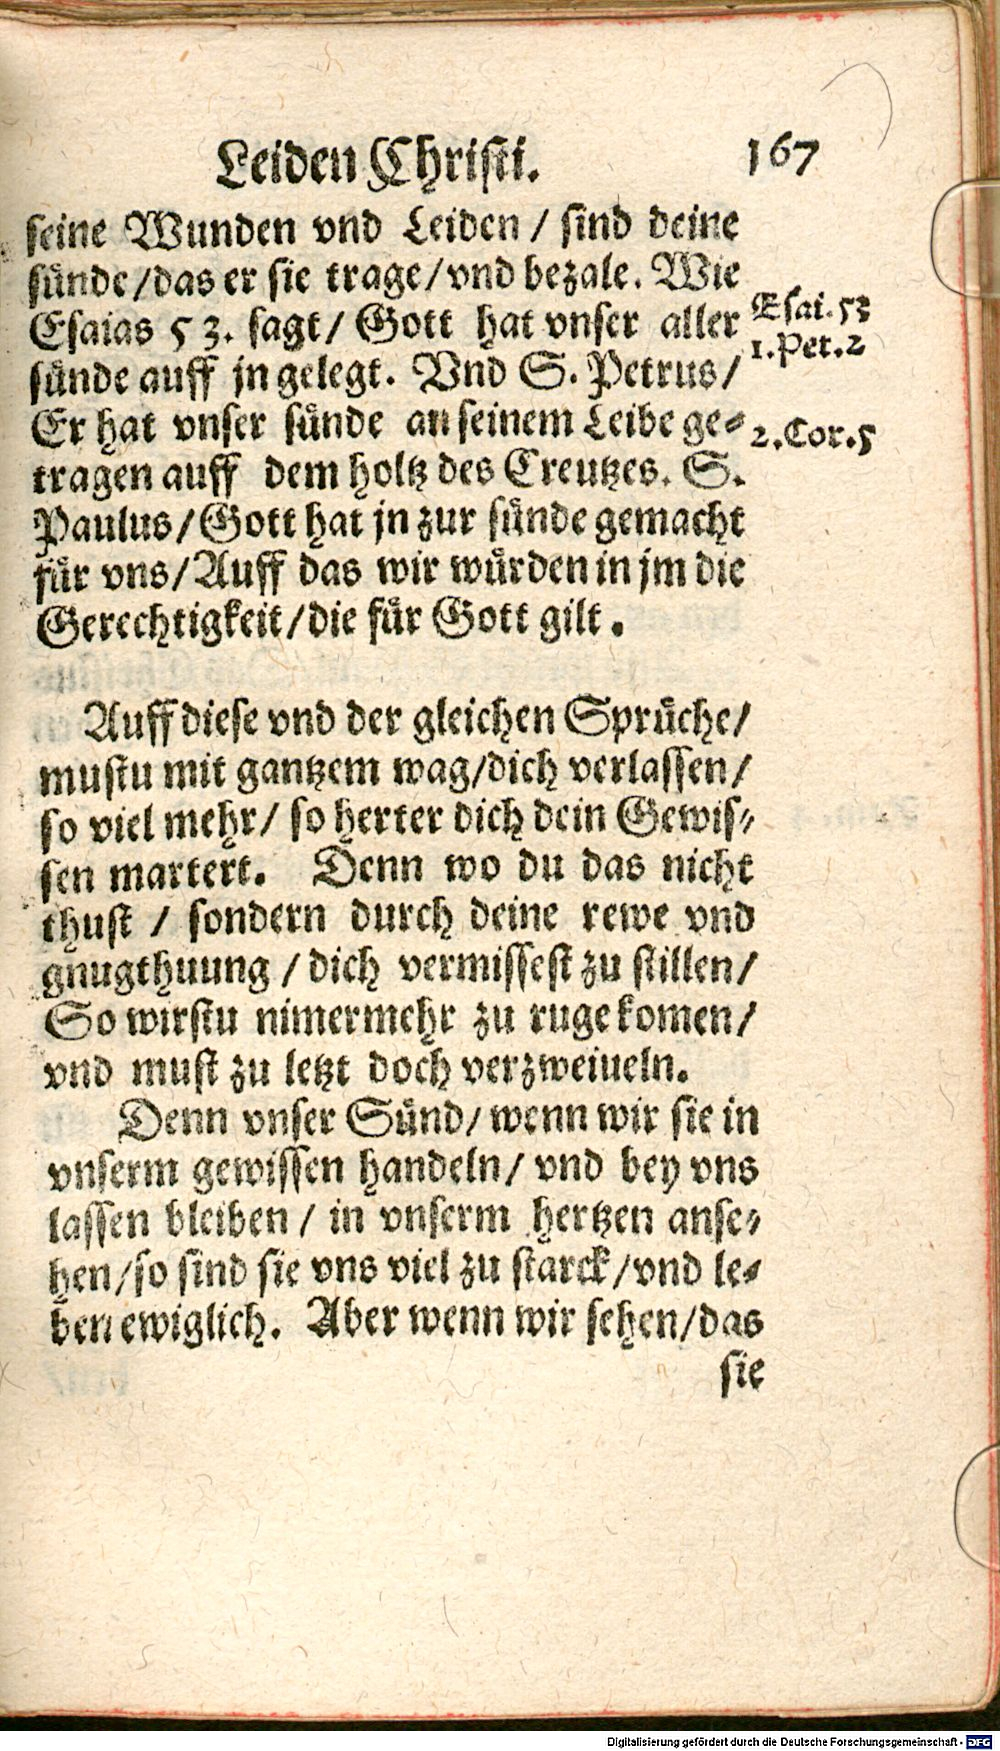 Leiden Christi. 167
seine Wunden vnd Leiden / sind deine
sünde / das er sie trage / vnd bezale. Wie
Esaias 53. sagt / Gott hat vnser aller
Esai. 53
sünde auff jn gelegt. Vnd S. Petrus /
1. Pet. 2
Er hat vnser sünde an seinem Leibe ge-
2. Cor. 5
tragen auff dem holtz des Creutzes. S.
Paulus / Gott hat jn zur sünde gemacht
für vns / Auff das wir würden in jm die
Gerechtigkeit / die für Gott gilt.
Auff diese vnd der gleichen Sprüche /
mustu mit gantzem wag / dich verlassen /
so viel mehr / so herter dich dein Gewis-
sen martert. Denn wo du das nicht
thust / sondern durch deine rewe vnd
gnugthuung / dich vermissest zu stillen /
So wirstu nimermehr zu ruge komen /
vnd must zu letzt doch verzweiueln.
Denn vnser Sünd / wenn wir sie in
vnserm gewissen handeln / vnd bey vns
lassen bleiben / in vnserm hertzen anse-
hen / so sind sie vns viel zu starck / vnd le-
ben ewiglich. Aber wenn wir sehen / das
sie
Digitalisierung gefördert durch die Deutsche Forschungsgemeinschaft - DFG